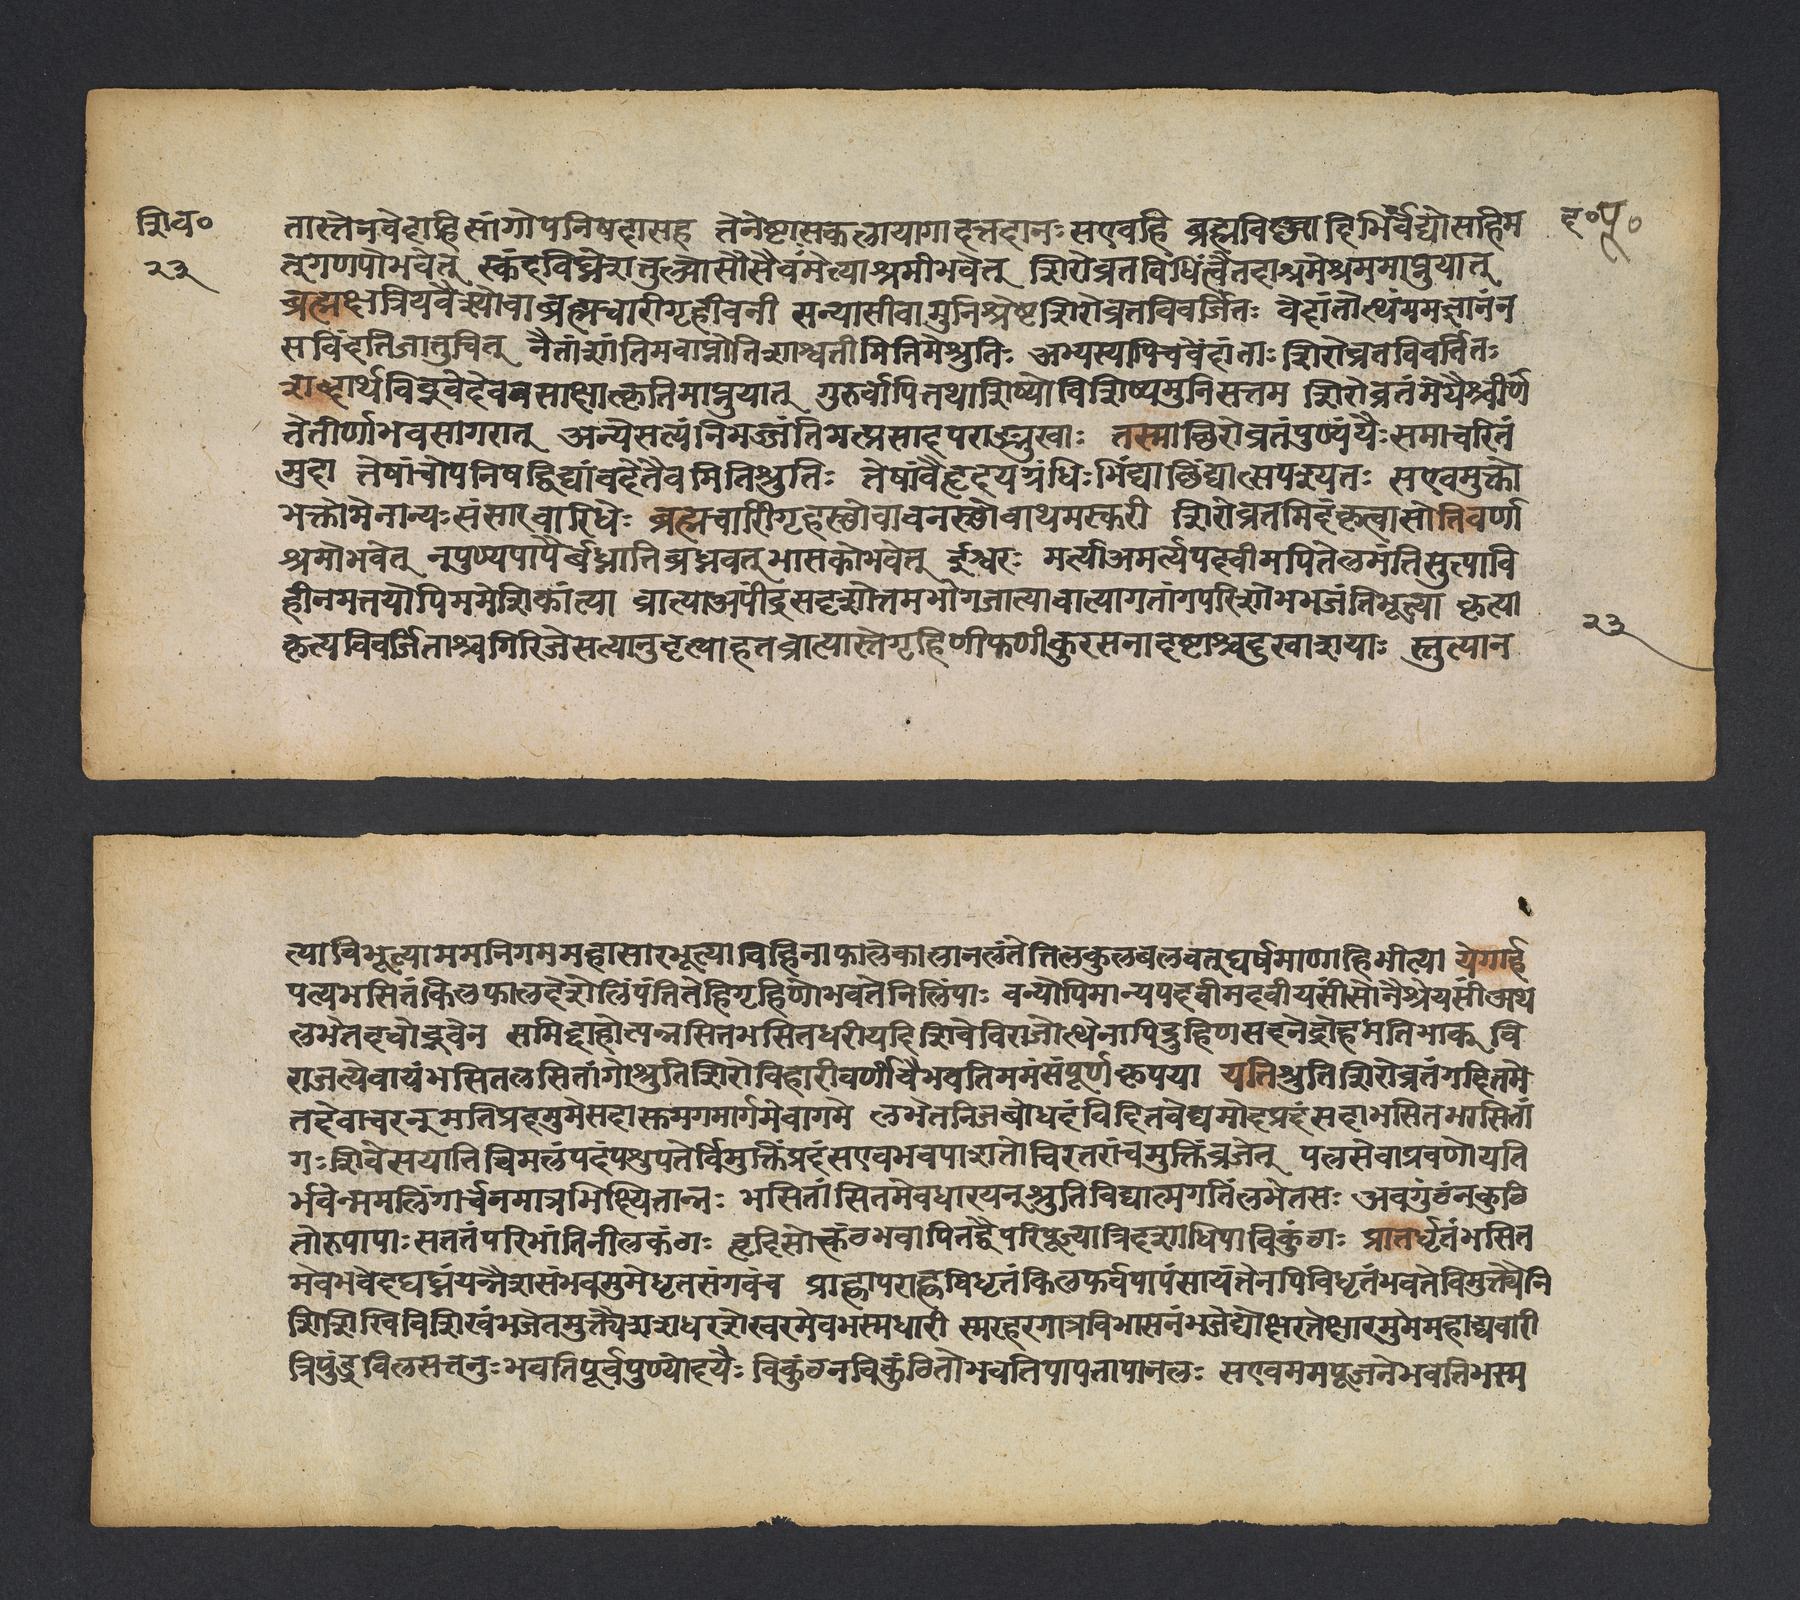 शिव०
२३
ह०पु०
तास्तेनवेदाहि सांगोपनिषदासह तेनेष्टासकलायागादत्तदानः सएवहि ब्रह्मविद्भ्यो हि भिर्वैद्योसहिम
त्गणपोभवेत् स्कंदविघ्नेशतुल्योसौसैवंमेत्याश्रमीभवेत् शिरोव्रतविधिंत्वैतदाश्रमेश्रममाप्नुयात्
ब्रह्मक्षत्रियवैश्योवाब्रह्मचारीगृहीवनी सन्यासीवामुनिश्रेष्ठशिरोव्रतविवर्जितः वेदांतोत्थंममज्ञानंन
सविंदतिजातुचित् नैतांशांतिमवाप्नोतिशाश्वतीमितिमेश्रुतिः अभ्यस्यापिचवेदांताः शिरोव्रतविवर्जितः
शब्दार्थविद्भवेदेवनसाक्षात्कृतिमाप्नुयात् गुरुर्वापितथाशिष्योविशिष्यमुनिसत्तम शिरोव्रतंमेयैश्चीर्ण
तेतीर्णाभवसागरात् अन्येसत्यंनिमज्जंतिमत्प्रसादपराङ्मुखाः तस्माच्छिरोव्रतंपुण्यंयैःसमाचरितं
मुदा तेषांचोपनिषद्विद्यांवदेतैवमितिश्रुतिः तेषांवैहृदयग्रंथिःभिंद्याछिंद्यात्सपश्यतः सएवमुक्तो
भक्तोमेनान्यःसंसारवारिधेः ब्रह्मचारीगृहस्छोवावनस्छोवाथमस्करी शिरोव्रतमिदंकृत्वासोतिवर्णा
श्रमीभवेत् नपुण्यपापैर्बध्नातिब्रध्नवत्भासकोभवेत् ईश्वरः मर्त्याअमर्त्यपदवीमपितेलभंतिसुत्यावि
हीनमतयोपिममेशिकांत्या व्रात्याअपींद्रसदृशोत्तमभोगजात्यावात्यागतांगपरिशोभभजंतिभूत्या कृत्या
कृत्यविवर्जिताश्चगिरिजेसत्यानुवृत्याहतव्रात्यास्तेगृहिणीफणीकुरसनादष्टाश्चदुखाशयाः स्तुत्यान
२३
त्याविभूत्याममनिगममहासारभूत्याविहिनाफालेकालानलंतेतिलकुलबलवत्घर्षमाणाहिभीत्या येगार्ह
पत्यभसितंकिलफालदेशेलिंपंतितेहिगृहिणोभवतेनिलिंपाः वन्योपिमान्यपदवीमदवीयसींसोनैश्रेयसींअथ
लभेतदवोद्भवेन समिद्दाहोत्पन्नसितभसितधरीयदिशिवेविराजोत्थेनापिद्रुहिणसदनेद्रोहमतिभाक् वि
राजत्येवायंभसितलसितांगोश्रुतिशिरोविहारीवर्णीचैभवतिममसंपूर्णकृपया यतिश्रुतिशिरोव्रतंगदितमे
तदेवाचरन्मतिप्रदमुमेसदास्तमगमार्गमेवागमे लभेतनिजबोधदंविदितवेद्यमोदप्रदंसदाभसितभासितां
गःशिवेसयातिविमलंपदंपशुपतेर्विमुक्तिप्रदंसएवभवपाशतोचिरतरांचमुक्तिंव्रजेत् पलसेवाप्रवणोयति
र्भवेन्ममलिंगार्चनमात्रभिक्ष्यितान्नः भसितांसितमेवधारयन्श्रुतिविद्यात्मगतिंलभेतसः अवगुंठनकुठि
तोरुपापाःसततंपरिभांतिनीलकंठाः हृदिसोत्कंठभवापितद्वैपरिपूज्यात्रिदशाधिपाविकुंठाः प्रातर्धृतंभसित
मेवभवेदघघ्नंयन्नैशसंभवमुमेधृतसंगवंच प्राह्णापराह्णविधृतंकिलफर्वपापंसायंतेनपिविधृतंभवतेविमुक्त्यैनि
शिशिखिविशिखंभजेतमुक्त्यैशशधरशेखरमेवभस्मधारी स्मरहरगात्रविभासनंभजेद्योक्षरतेक्षारमुमेमहाद्यवारी
त्रिपुंड्रविलसत्तनुःभवतिपूर्वपुण्योदयैः विकुंठनविकुंठितोभवतिपापतापानलः सएवममपूजनेभवेतिभस्म